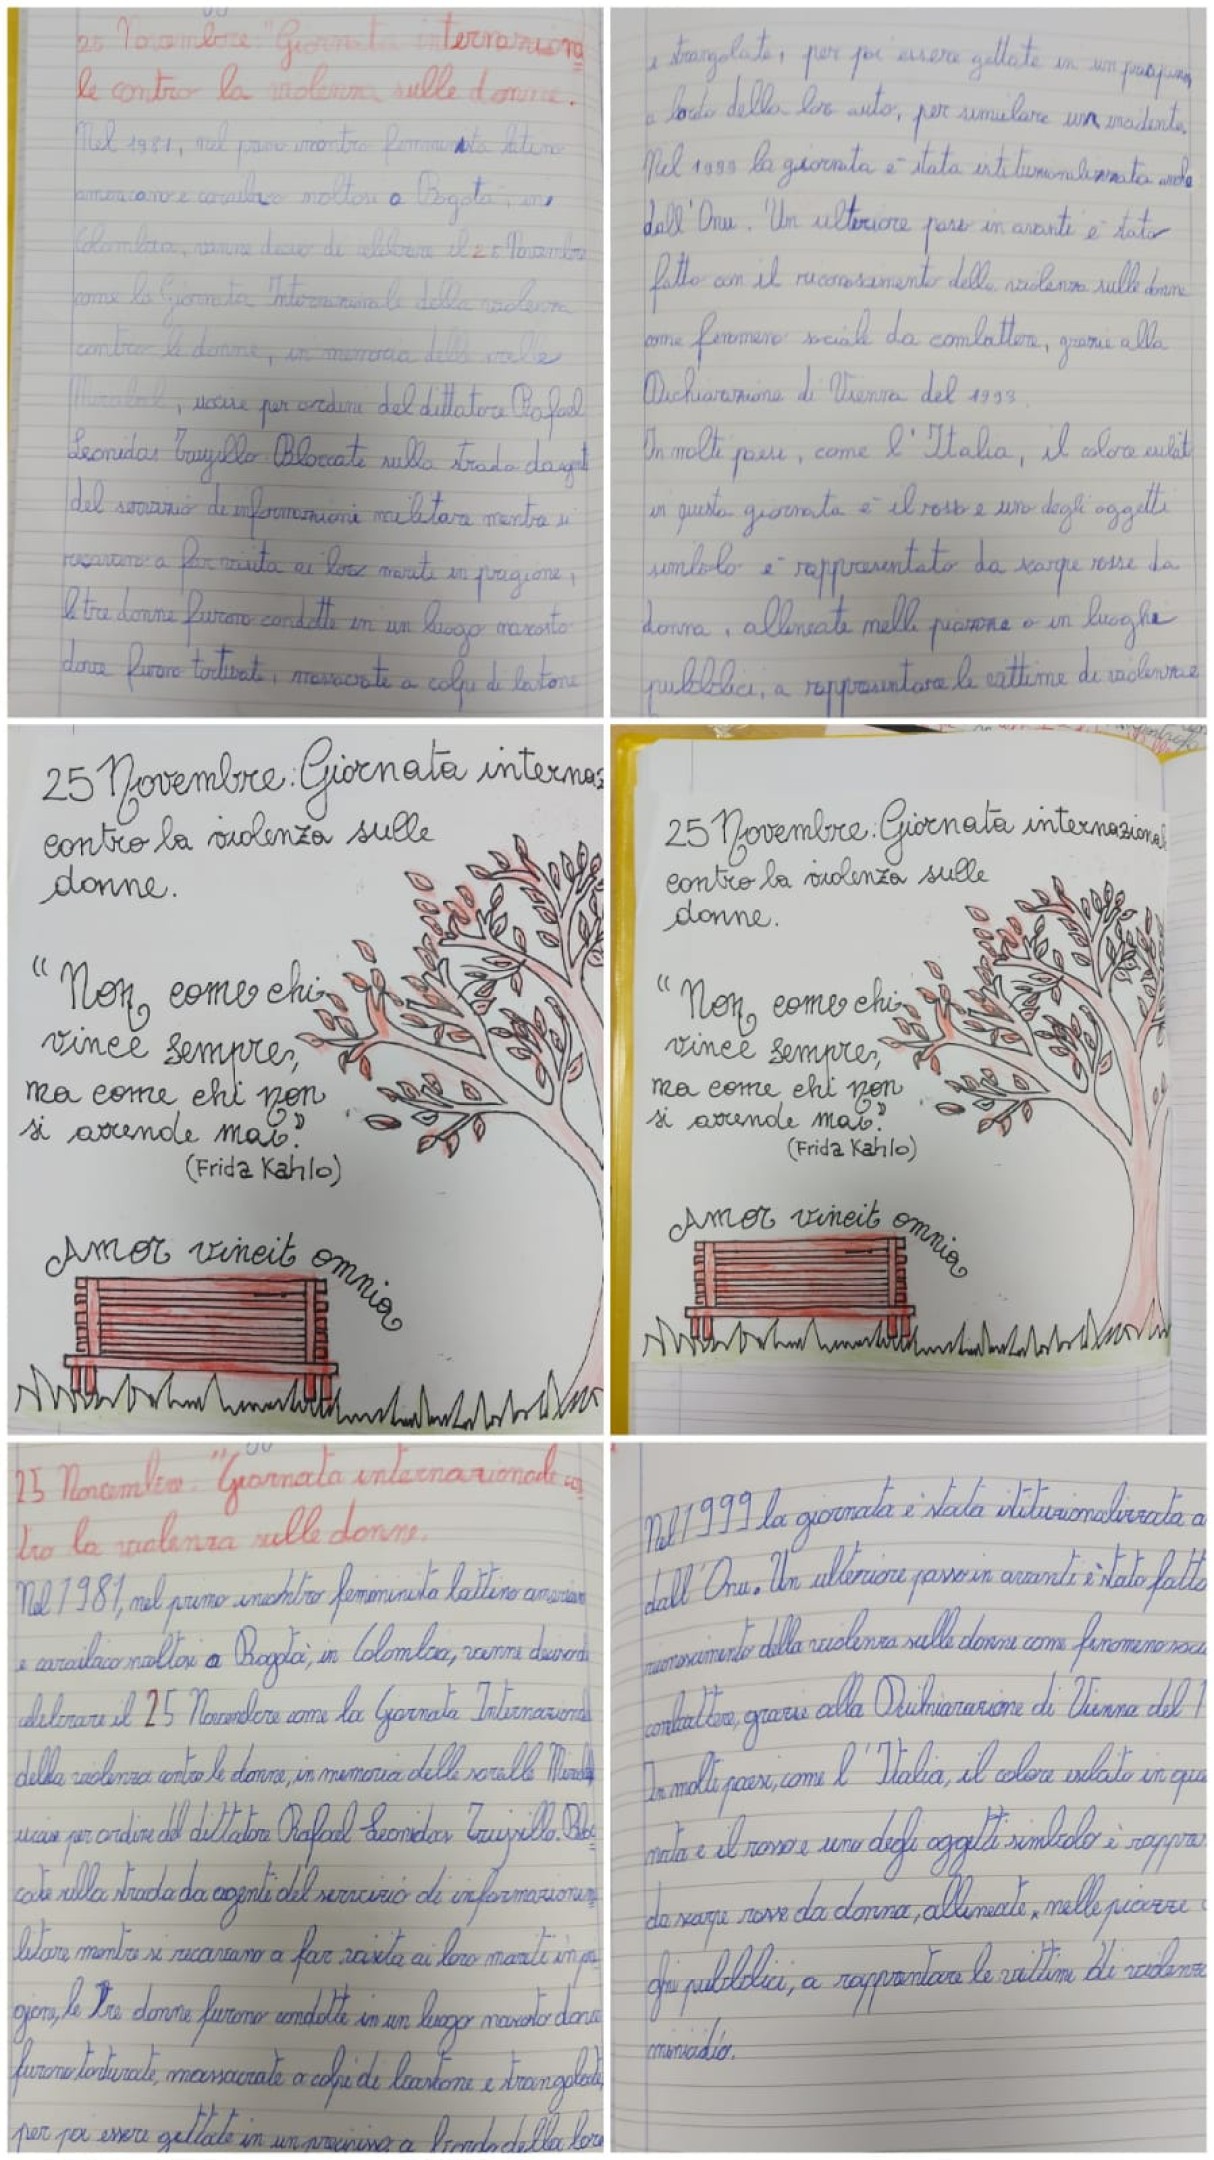 25 Novembre. "Giornata internaziona
le contro la violenza sulle donne.
Nel 1981, nel primo incontro femminista latino
americano e caraibico svoltosi a Bogotà, in
Colombia, venne deciso di celebrare il 25 Novembre
come la Giornata Internazionale della violenza
contro le donne, in memoria delle
Mirabal, uccise per ordine del dittatore Rafael
Leonidas Trujillo Bloccate sulla strada da agenti
del servizio di informazioni militare mentre si
recavano a far visita ai loro mariti in prigione,
le tre donne furono condotte in un luogo nascosto
dove furono torturate, massacrate a colpi di bastone
e strangolate, per poi essere gettate in un
a bordo della lor auto, per simulare un incidente.
Nel 1999 la giornata è stata istituzionalizzata anche
dall'Onu. Un ulteriore passo in avanti è stato
fatto con il riconoscimento della violenza sulle donne
come fenomeno sociale da combattere, grazie alla
Dichiarazione di Vienna del 1993.
In molti paesi, come l'Italia, il colore
in questa giornata è il rosso e uno degli oggetti
simbolo è rappresentato da scarpe rosse da
donna, allineate nelle piazze o in luoghi
pubblici, a rappresentare le vittime di violenza e
25 Novembre: Giornata internaz
contro la violenza sulle
donne.
"Non come chi
vince sempre,
ma come chi non
si arrende mai."
(Frida Kahlo)
Amor vincit omnia
25 Novembre: Giornata internazional
contro la violenza sulle
donne.
"Non come chi
vince sempre,
ma come chi non
si arrende mai."
(Frida Kahlo)
Amor vincit omnia
25 Novembre. "Giornata internazionale con
tro la violenza sulle donne.
Nel 1981, nel primo incontro femminista lattino american
e caraibico svoltosi a Bogotà, in Colombia, venne deciso di
celebrare il 25 Novembre come la Giornata Internazional
della violenza contro le donne, in memoria delle sorelle Mirabal,
uccise per ordine del dittatore Rafael Leonidas Trujillo. Bloc
cate sulla strada da agenti del servizio di informazione mi
litare mentre si recavano a far visita ai loro mariti in pri
gione, le tre donne furono condotte in un luogo nascosto dove
furono torturate, massacrate a colpi di bastone e strangolate,
per poi essere gettate in un precipizio a bordo della loro
Nel 1999 la giornata è stata istituzionalizzata a
dall'Onu. Un ulteriore passo in avanti è stato fatto
riconoscimento della violenza sulle donne come fenomeno soci
combattere, grazie alla Dichiarazione di Vienna del 1
In molti paesi, come l'Italia, il colore esibito in que
nata e il rosso e uno degli oggetti simbolo è rappre
da scarpe rosse da donna, allineate, nelle piazze o
ghi pubblici, a rappresentare le vittime di violenza
minicidio.